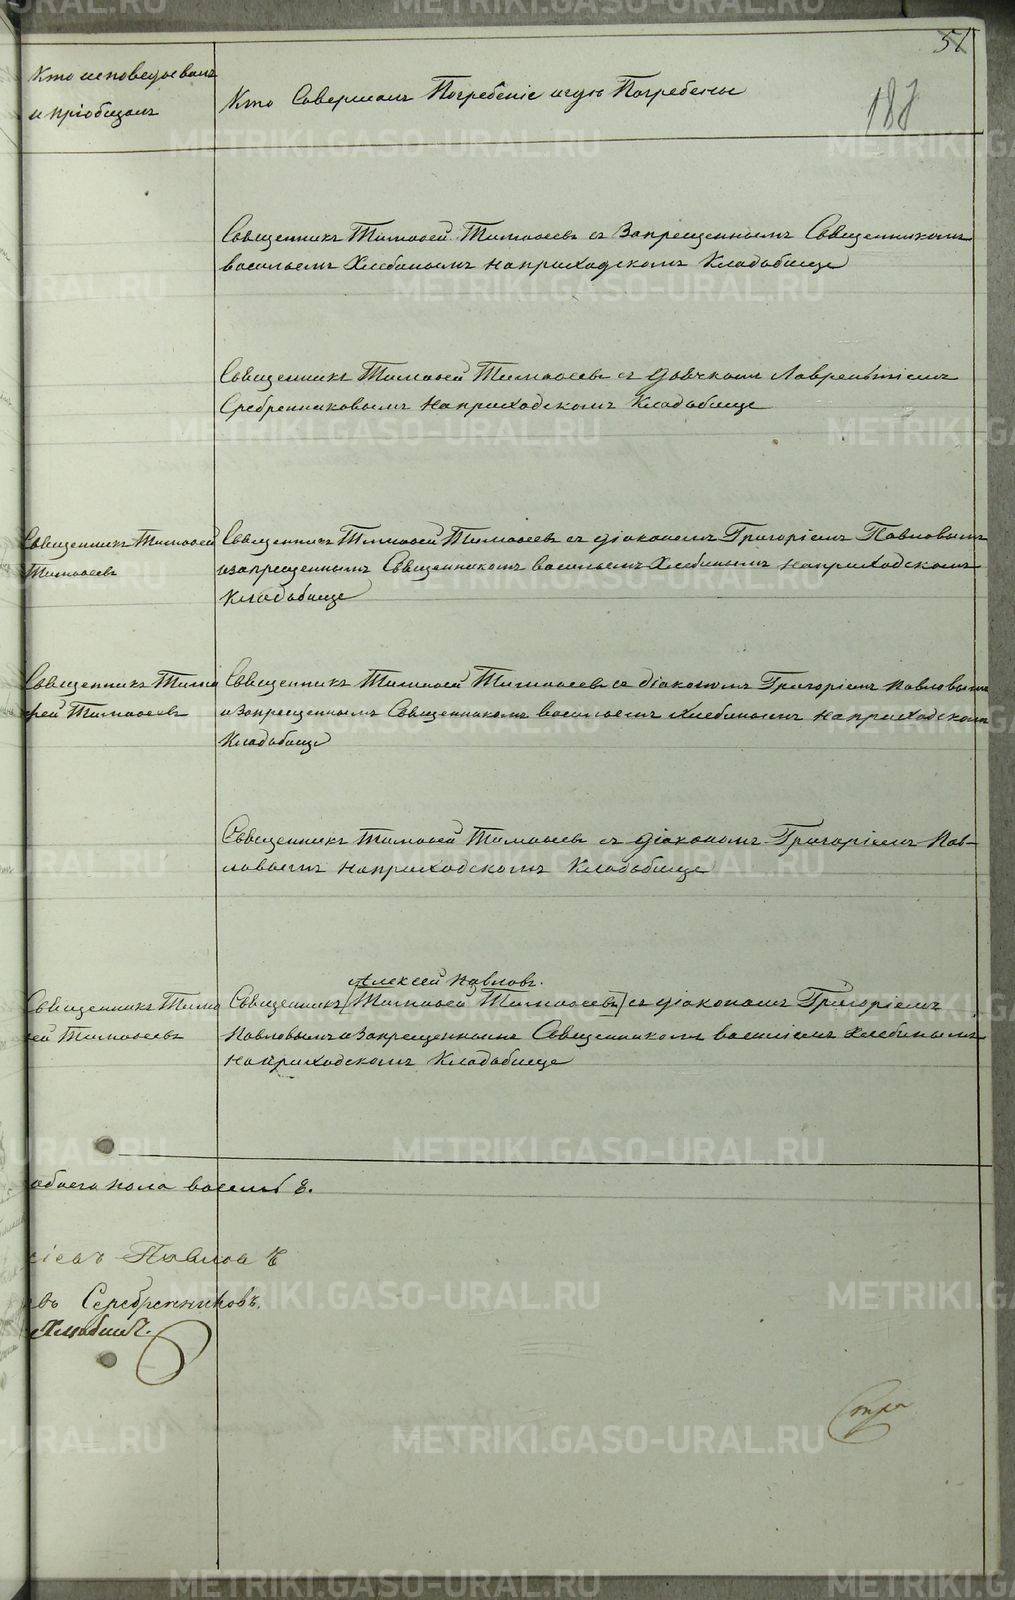 51
187
Кто исповедывалъ
и пріобщалъ
Кто Совершалъ Погребеніе и гдѣ Погребены
Священникъ Тимоѳей Тимоѳеевъ съ Запрещеннымъ Священникомъ
васильемъ Хлебинымъ на приходскомъ Кладбище
Священникъ Тимоѳей Тимоѳеевъ съ дьячкомъ Лаврентіемъ
Сребренниковымъ на приходскомъ Кладбище
Священникъ Тимоѳей
Тимоѳеевъ
Священникъ Тимоѳей Тимоѳеевъ съ діакономъ Григоріемъ Павловымъ
и запрещеннымъ Священникомъ васильемъ Хлебинымъ на приходскомъ
Кладбище
Священникъ Тимо
ѳей Тимоѳеевъ
Священникъ Тимоѳей Тимоѳеевъ съ діакономъ Григоріемъ Павловымъ
и Запрещеннымъ Священникомъ васильемъ Хлебинымъ на приходскомъ
Кладбище
Священникъ Тимоѳей Тимоѳеевъ съ діакономъ Григоріемъ Пав-
ловымъ на приходскомъ Кладбище
Священникъ Тимо
ѳей Тимоѳеевъ
Алексей Павловъ.
Священникъ [Тимоѳей Тимоѳеевъ] съ діакономъ Григоріемъ
Павловымъ и Запрещеннымъ Священникомъ василіемъ Хлебинымъ
на приходскомъ Кладбище
обоего пола восемь 8.
Павловъ
Серебренниковъ.
Хлѣбинъ.
METRIKI.GASO-URAL.RU